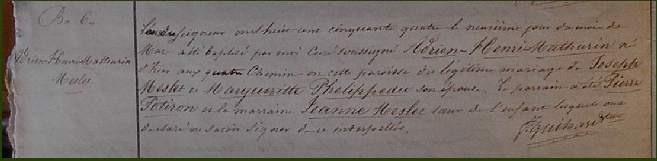 B. 6.
Adrien Henri Mathurin
Mesles
L'an du seigneur mil huit cent cinquante quatre le neuvième jour du mois de
Mai a été baptisé par moi Curé soussigné Adrien-Henri-Mathurin né
d'hier aux quatre Chemins en cette paroisse du légitime mariage de Joseph
Mesles et Marguerite Phelippeau son épouse. Le parrain a été Pierre
Potiron et la marraine Jeanne Mesles sœur de l'enfant lesquels ont
déclaré ne savoir signer de ce interpellés.